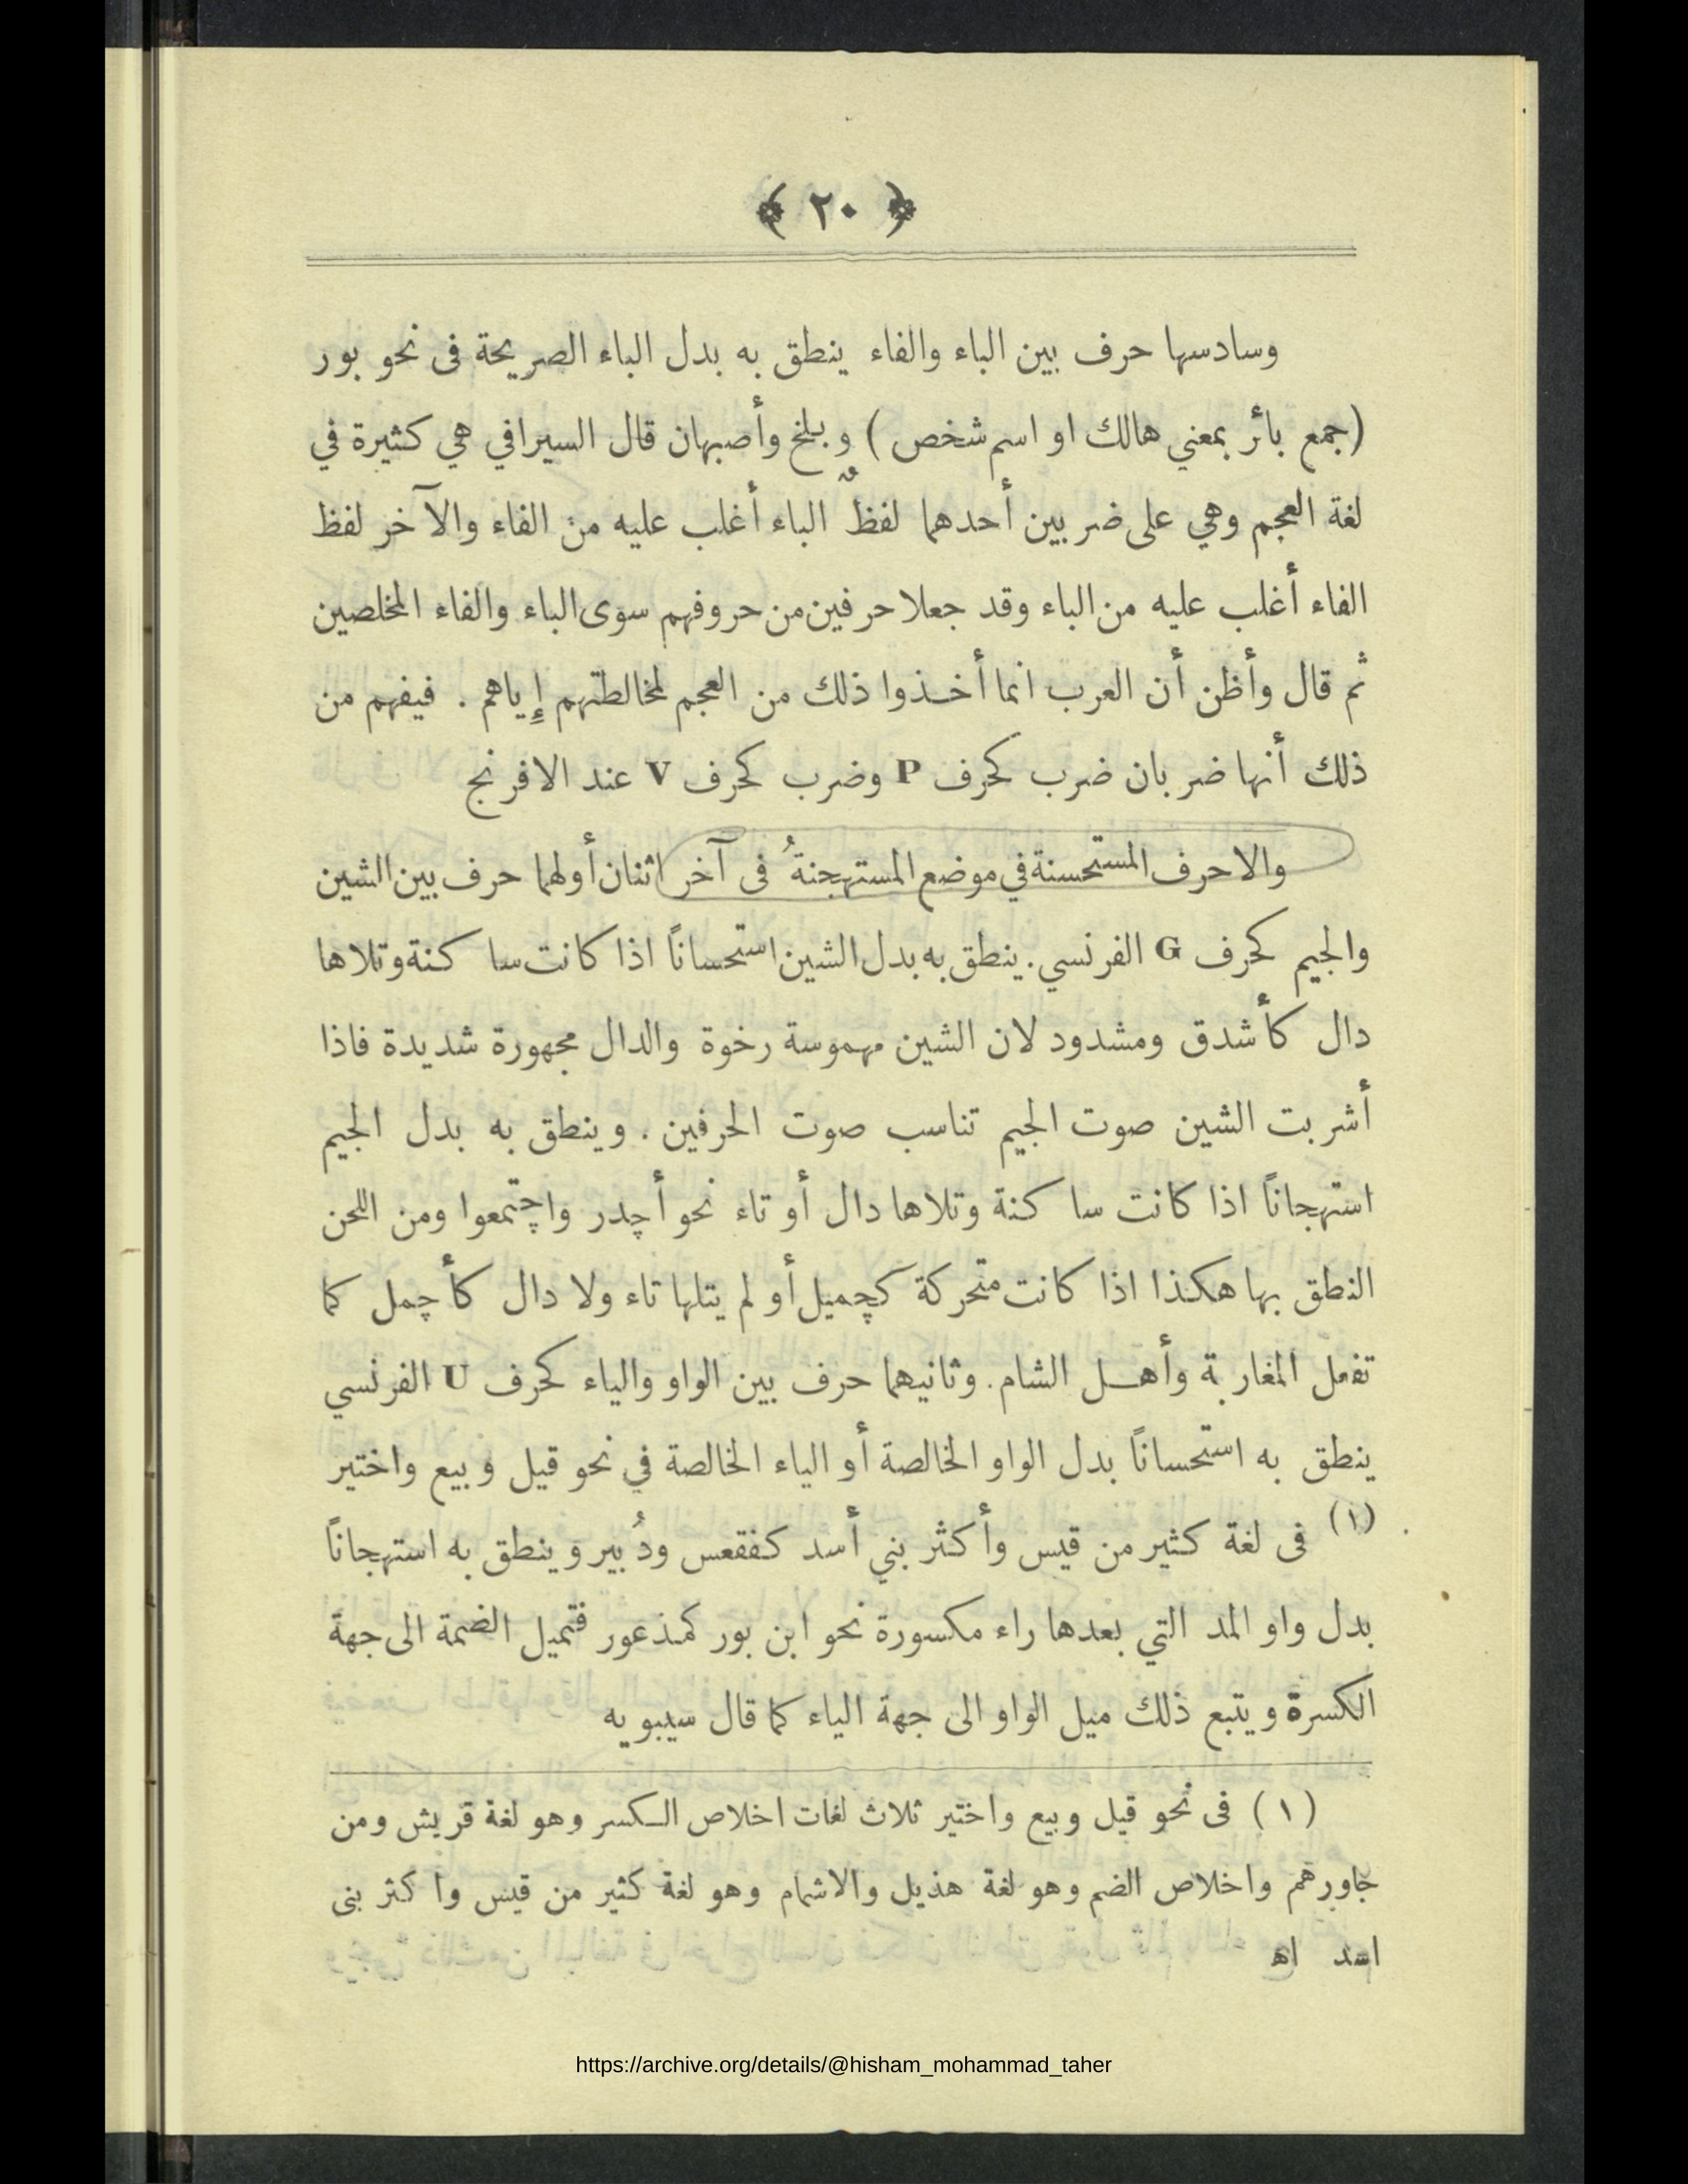 ﴿ ٢٠ ﴾
وسادسها حرف بين الباء والفاء ينطق به بدل الباء الصريحة فى نحو بور
(جمع بائر بمعني هالك او اسم شخص ) وبلخ وأصبهان قال السيرافي هي كثيرة في
لغة العجم وهي على ضربين أحدهما لفظُ الباء أغلب عليه من الفاء والآخر لفظ
الفاء أغلب عليه من الباء وقد جعلا حرفين من حروفهم سوى الباء والفاء المخلصين
ثم قال وأظن أن العرب انما أخذوا ذلك من العجم لمخالطتهم إياهم . فيفهم من
ذلك أنها ضربان ضرب كحرف P وضرب كحرف V عند الافرنج
والاحرف المستحسنة في موضع المستهجنةُ فى آخر اثنان أولهما حرف بين الشين
والجيم كحرف G الفرنسي . ينطق به بدل الشين استحساناً اذا كانت ساكنة وتلاها
دال كأشدق ومشدود لان الشين مهموسة رخوة والدال مجهورة شديدة فاذا
أشربت الشين صوت الجيم تناسب صوت الحرفين . وينطق به بدل الجيم
استهجاناً اذا كانت ساكنة وتلاها دال أو تاء نحو أچدر واچتمعوا ومن اللحن
النطق بها هكذا اذا كانت متحركة كچميل أو لم يتلها تاء ولا دال كأچمل كما
تفعل المغاربة وأهل الشام . وثانيهما حرف بين الواو والياء كحرف U الفرنسي
ينطق به استحساناً بدل الواو الخالصة أو الياء الخالصة في نحو قيل وبيع واختير
(١) فى لغة كثير من قيس وأكثر بني أسد كفقعس ودُبير وينطق به استهجاناً
بدل واو المد التي بعدها راء مكسورة نحو ابن بور كمذعور فتميل الضمة الى جهة
الكسرة ويتبع ذلك ميل الواو الى جهة الياء كما قال سيبويه
(١) فى نحو قيل وبيع واختير ثلاث لغات اخلاص الكسر وهو لغة قريش ومن
جاورهم واخلاص الضم وهو لغة هذيل والاشمام وهو لغة كثير من قيس واكثر بنى
اسد اهـ
https://archive.org/details/@hisham_mohammad_taher